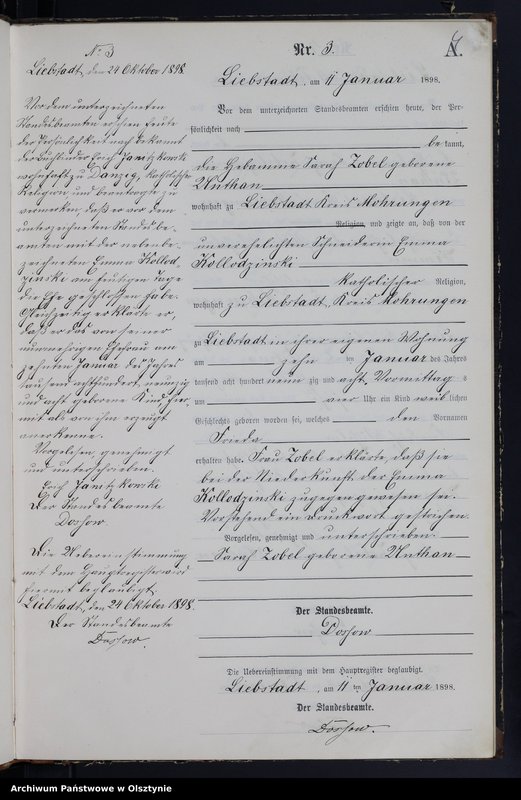 No 3
Liebstadt, den 24 Oktober 1898.
Vor dem unterzeichneten
Standesbeamten erschien heute
der Persönlichkeit nach bekannt
der Erich Janitzkowski
wohnhaft zu Danzig, katholischer
Religion und beantragte zu
vermerken, daß er vor dem
unterzeichneten Standesbe-
amten mit der nebenbe-
zeichneten Emma Kollod-
zinski am heutigen Tage
die Ehe geschlossen habe.
Gleichzeitig erklärte er,
daß er das von seiner
nunmehrigen Ehefrau am
zehnten Januar des Jahres
tausend achthundert neunzig
und acht geborene Kind hier-
mit als von ihm erzeugt
anerkenne.
Vorgelesen, genehmigt
und unterschrieben.
Erich Janitzkowski
Der Standesbeamte
Dossow.
Die Uebereinstimmung
mit dem Hauptregister wird
hiermit beglaubigt.
Liebstadt, den 24 Oktober 1898.
Der Standesbeamte
Dossow.
Nr. 3.
A.
Liebstadt, am 11 Januar 1898.
Vor dem unterzeichneten Standesbeamten erschien heute, der Per-
sönlichkeit nach
be kannt,
die Hebamme Sarah Zobel geborene
Unthan
wohnhaft zu Liebstadt Kreis Mohrungen
Religion, und zeigte an, daß von der
unverehelichten Schneiderin Emma
Kollodzinski
katholischer Religion,
wohnhaft zu Liebstadt, Kreis Mohrungen
zu Liebstadt in ihrer eigenen Wohnung
am zehn ten Januar des Jahres
tausend acht hundert neun zig und acht, Vormittag s
um vier Uhr ein Kind weib lichen
Geschlechts geboren worden sei, welches den Vornamen
Frieda
erhalten habe. Frau Zobel erklärte, daß sie
bei der Niederkunft der Emma
Kollodzinski zugegen gewesen sei.
Vorstehend ein Druckwort gestrichen.
Vorgelesen, genehmigt und unterschrieben.
Sarah Zobel geborene Unthan
Der Standesbeamte.
Dossow
Die Uebereinstimmung mit dem Hauptregister beglaubigt.
Liebstadt, am 11 ten Januar 1898.
Der Standesbeamte.
Dossow.
Archiwum Państwowe w Olsztynie